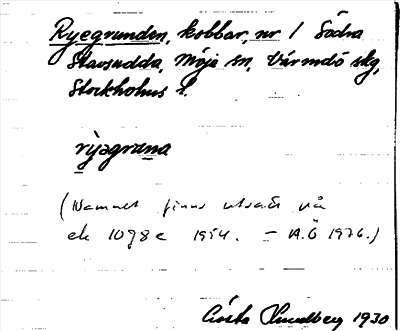 Ryegrunden, kobbar, nr 1 Södra
Stavsudda, Möja sn, Värmdö skg,
Stockholms l.
rỳ̱əgrana
(Namnet finns utsatt på
ek 10j8c 1954. – A.Ö 1976.)
Gösta Sundberg 1930